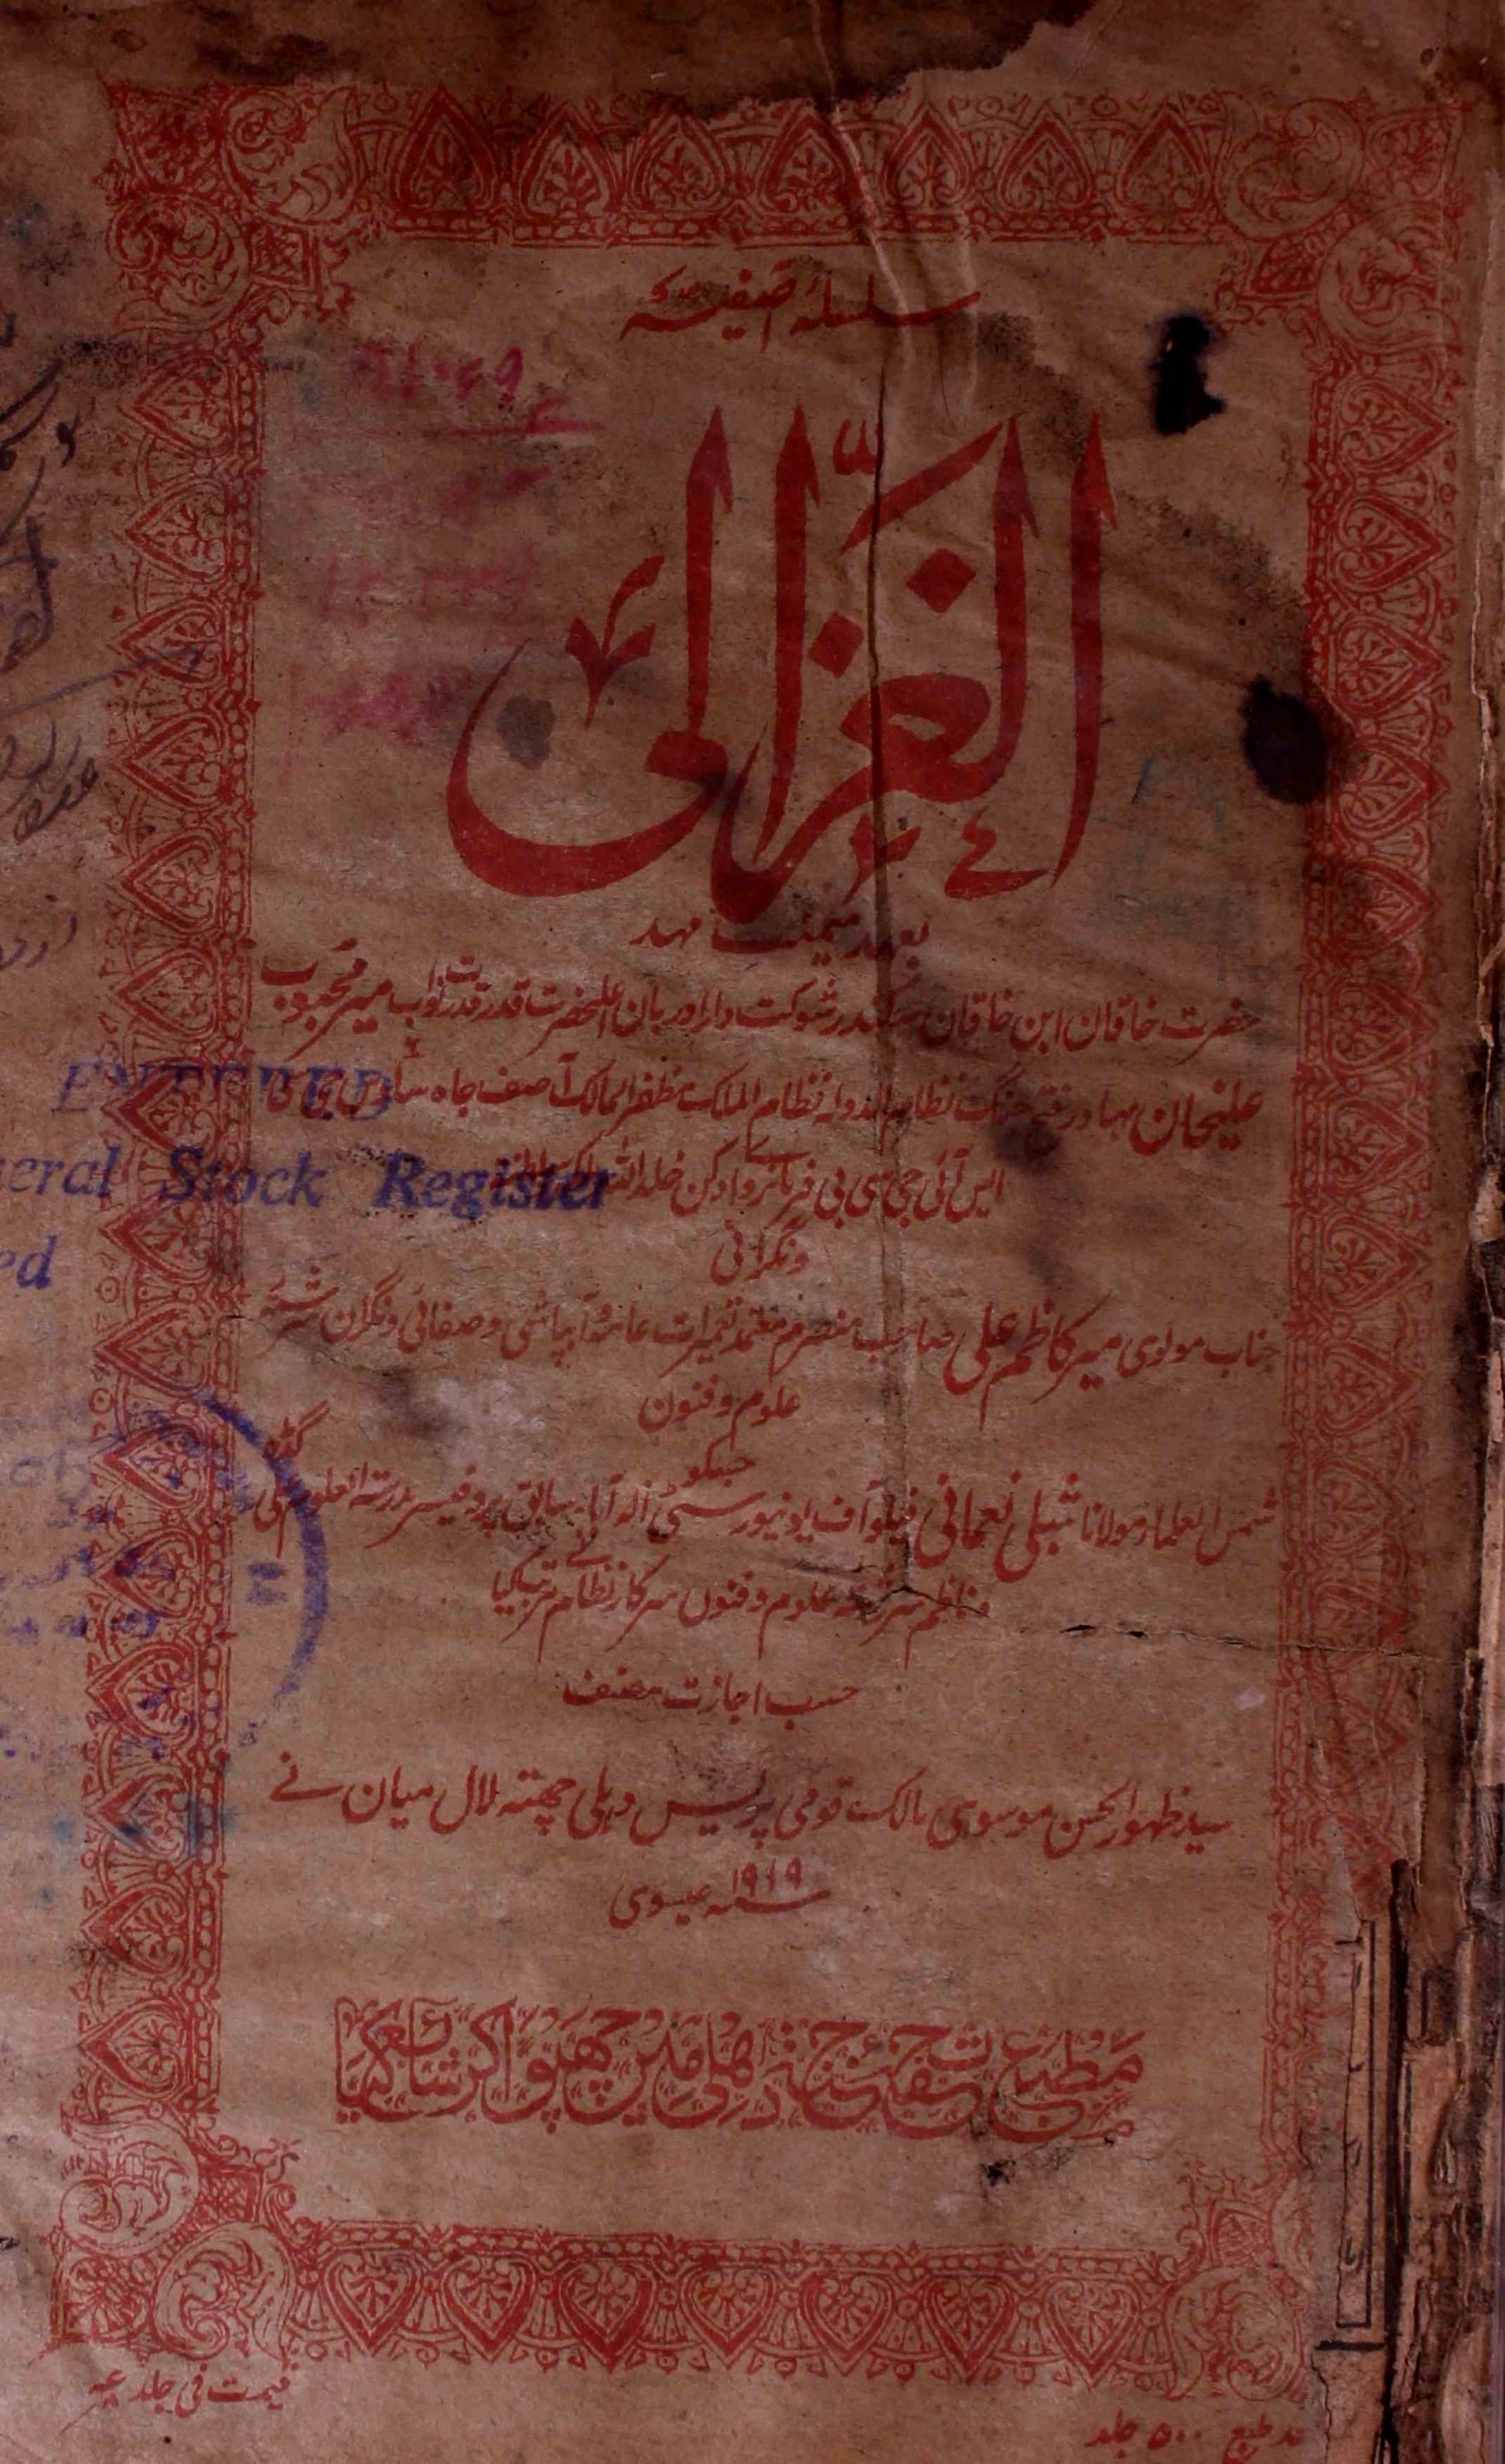 سلسلۂ آصفیہ
الغزالی
بعہد میمنت مہد
حضرت خاقان ابن خاقان سکندر شوکت دارا دربان اعلیٰحضرت قدر قدرت نواب میر محبوب
علیخان بہادر فتح جنگ نظام الدولہ نظام الملک مظفر الممالک آصف جاہ سادس جی
ایس آئی جی سی بی فرمانروائے دکن خلد اللہ ملکہ
ونگرانی
جناب مولوی میر کاظم علی صاحب منصرم معتمد تعمیرات عامہ و آبپاشی و صفائی و نگران سررشتہ
علوم و فنون
جسکو
شمس العلماء مولانا شبلی نعمانی فیلو آف یونیورسٹی الہ آباد سابق پروفیسر مدرستہ العلوم علی گڈھ
وناظم سررشتہ علوم و فنون سرکار نظام نے ترتیب کیا
حسب اجازت مصنف
سید ظہور الحسن موسوی مالک قومی پریس دہلی چھتہ لال میان نے
سنہ ۱۹۱۹ عیسوی
مطبع دہلی مین چھپوا کر شایع کیا
قیمت فی جلد
طبع ۵۰۰ جلد
ENTERED
neral Stock Register
ed